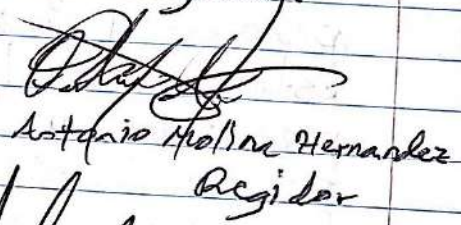 Antonio Molina Hernandez
Regidor